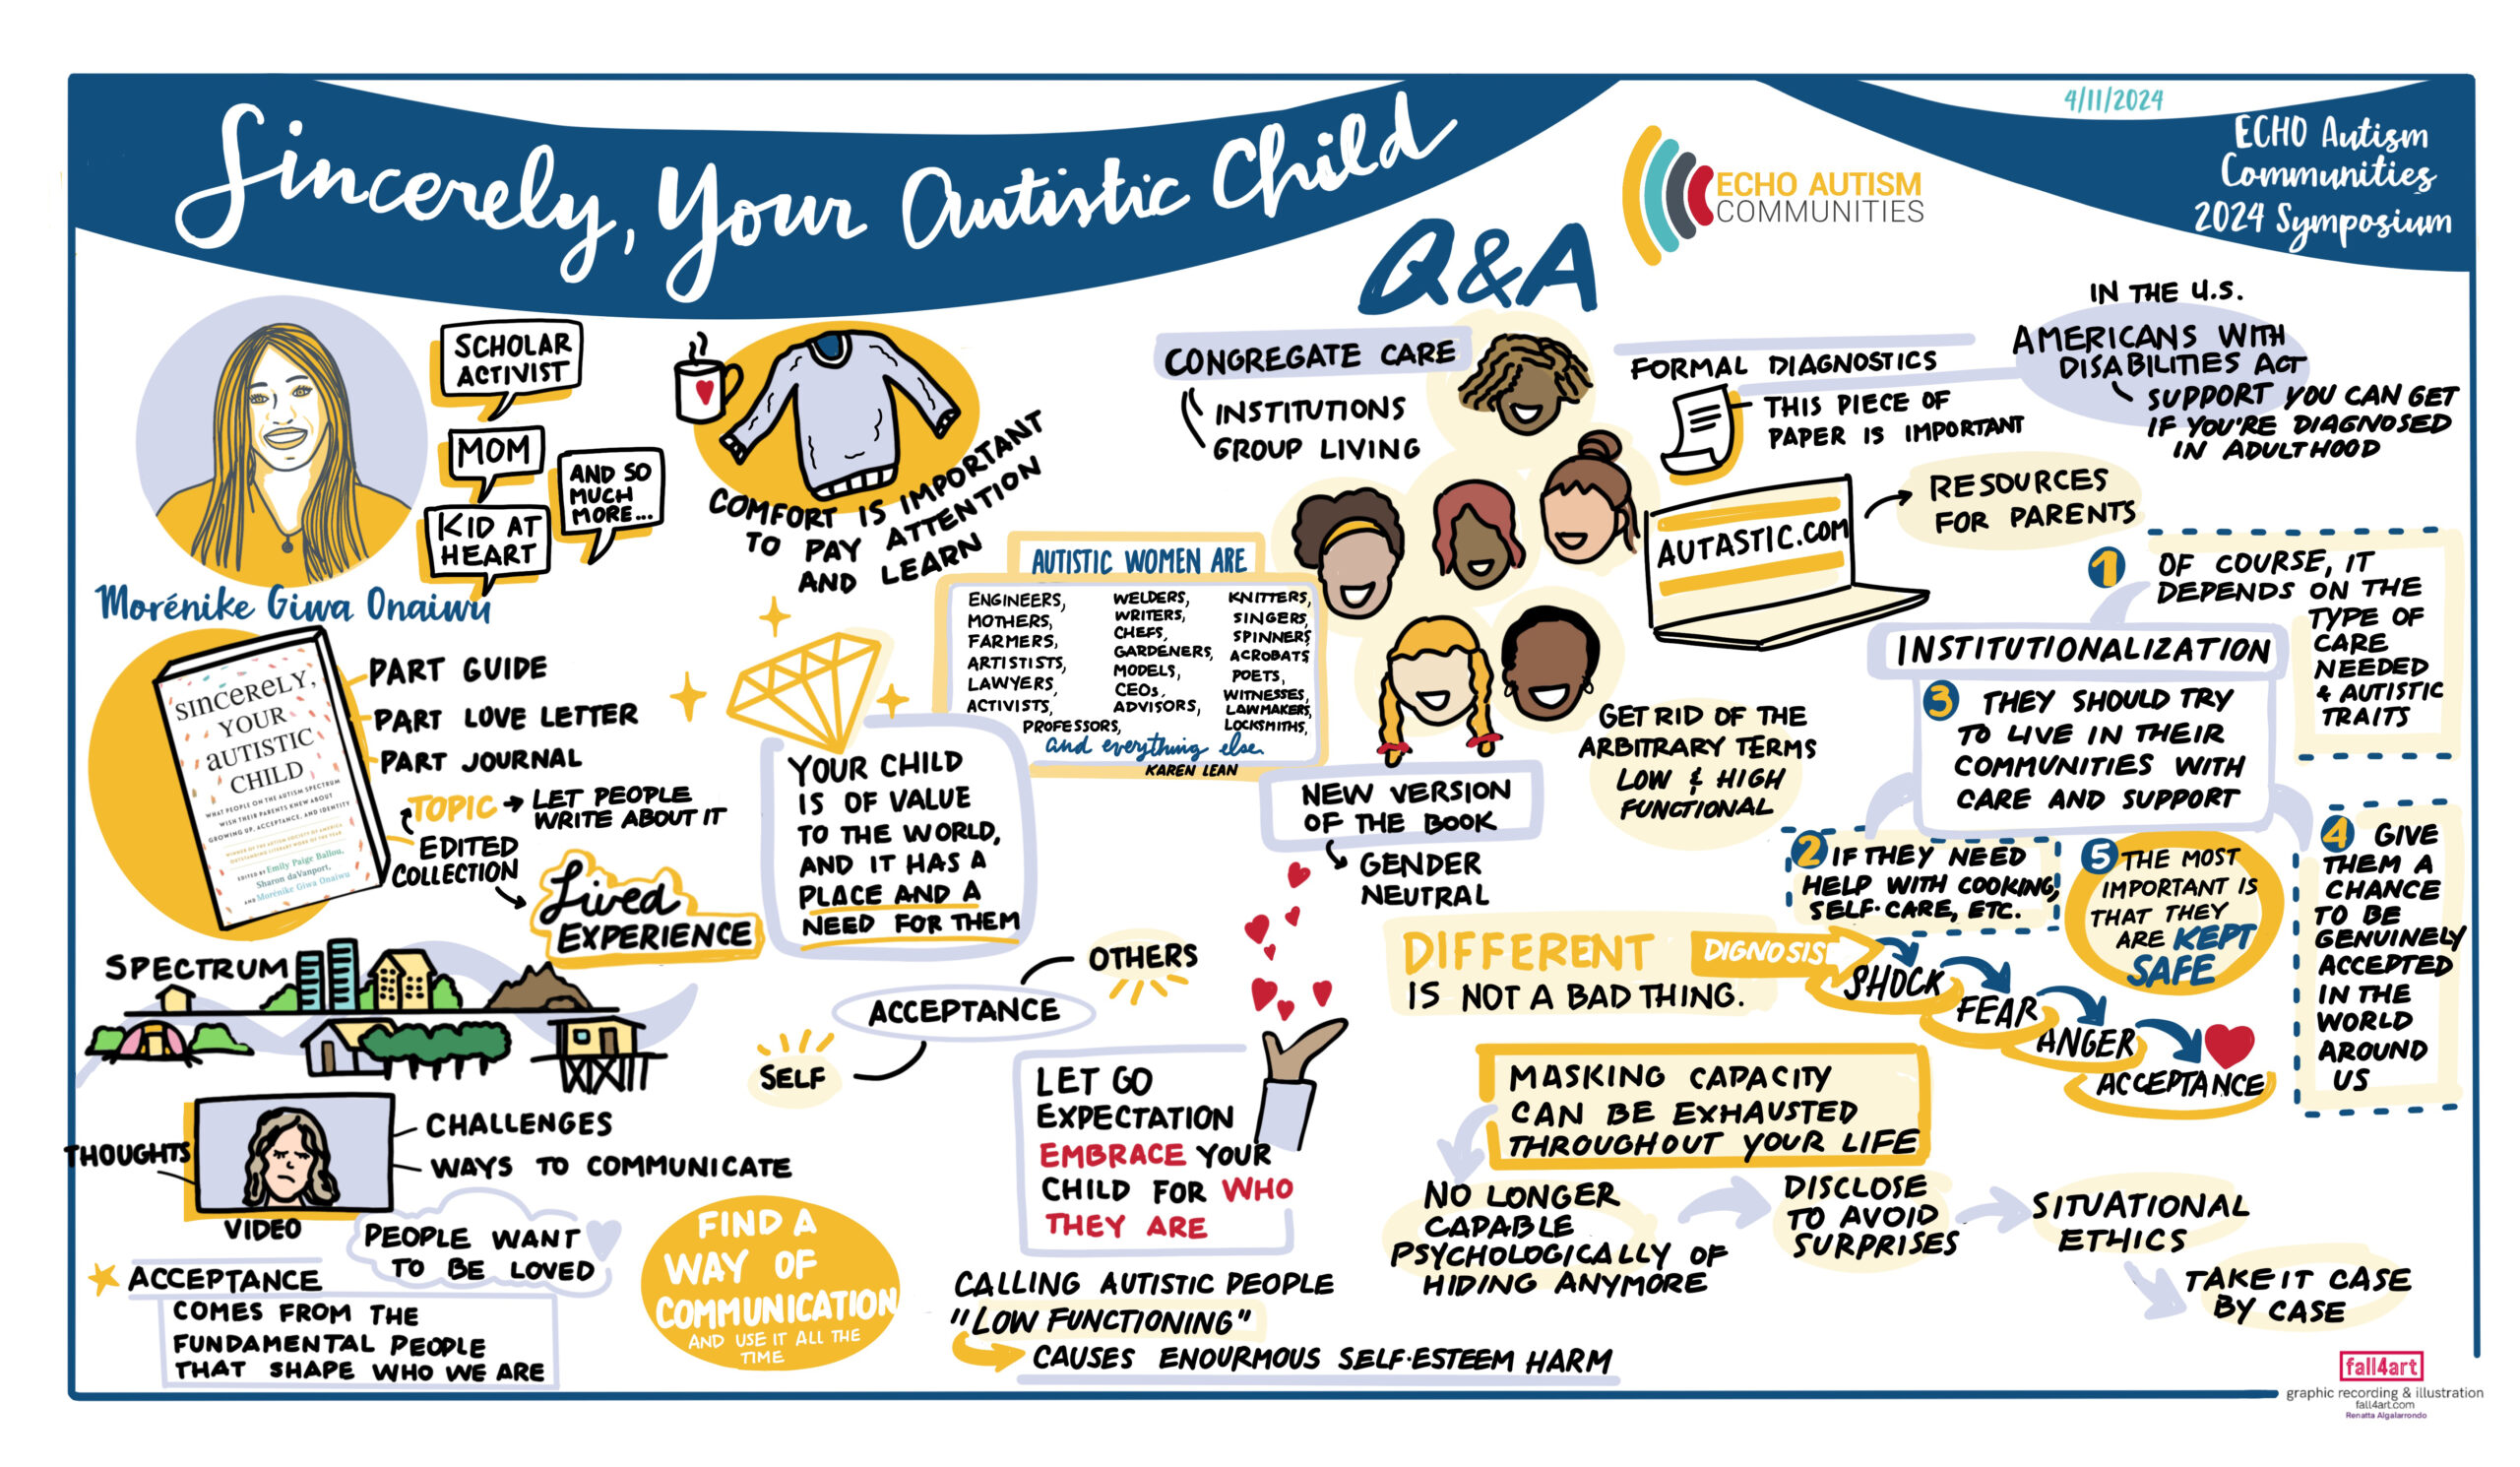 Sincerely, Your Autistic Child
Q&A
ECHO AUTISM
COMMUNITIES
4/11/2024
ECHO Autism
Communities
2024 Symposium
SCHOLAR
ACTIVIST
MOM
AND SO
MUCH
MORE...
KID AT
HEART
Morénike Giwa Onaiwu
COMFORT IS IMPORTANT
TO PAY ATTENTION
AND LEARN
SINCERELY,
YOUR
AUTISTIC
CHILD
WHAT PEOPLE ON THE AUTISM SPECTRUM
WISH THEIR PARENTS KNEW ABOUT
GROWING UP, ACCEPTANCE, AND IDENTITY
WINNER OF THE AUTISM SOCIETY OF AMERICA
OUTSTANDING LITERARY WORK OF THE YEAR
EDITED BY Emily Paige Ballou,
Sharon daVanport,
AND Morénike Giwa Onaiwu
PART GUIDE
PART LOVE LETTER
PART JOURNAL
TOPIC → LET PEOPLE
WRITE ABOUT IT
EDITED
COLLECTION
Lived
EXPERIENCE
SPECTRUM
THOUGHTS
VIDEO
CHALLENGES
WAYS TO COMMUNICATE
PEOPLE WANT
TO BE LOVED
ACCEPTANCE
COMES FROM THE
FUNDAMENTAL PEOPLE
THAT SHAPE WHO WE ARE
FIND A
WAY OF
COMMUNICATION
AND USE IT ALL THE
TIME
YOUR CHILD
IS OF VALUE
TO THE WORLD,
AND IT HAS A
PLACE AND A
NEED FOR THEM
AUTISTIC WOMEN ARE
ENGINEERS,
MOTHERS,
FARMERS,
ARTISTISTS,
LAWYERS,
ACTIVISTS,
PROFESSORS,
WELDERS,
WRITERS,
CHEFS,
GARDENERS,
MODELS,
CEOs,
ADVISORS,
KNITTERS,
SINGERS,
SPINNERS
ACROBATS
POETS,
WITNESSES,
LAWMAKERS,
LOCKSMITHS,
and everything else
KAREN LEAN
OTHERS
ACCEPTANCE
SELF
LET GO
EXPECTATION
EMBRACE YOUR
CHILD FOR WHO
THEY ARE
CALLING AUTISTIC PEOPLE
"LOW FUNCTIONING"
CAUSES ENOURMOUS SELF-ESTEEM HARM
CONGREGATE CARE
INSTITUTIONS
GROUP LIVING
NEW VERSION
OF THE BOOK
GENDER
NEUTRAL
FORMAL DIAGNOSTICS
THIS PIECE OF
PAPER IS IMPORTANT
IN THE U.S.
AMERICANS WITH
DISABILITIES ACT
SUPPORT YOU CAN GET
IF YOU'RE DIAGNOSED
IN ADULTHOOD
AUTASTIC.COM
RESOURCES
FOR PARENTS
GET RID OF THE
ARBITRARY TERMS
LOW & HIGH
FUNCTIONAL
INSTITUTIONALIZATION
1 OF COURSE, IT
DEPENDS ON THE
TYPE OF
CARE
NEEDED
& AUTISTIC
TRAITS
2 IF THEY NEED
HELP WITH COOKING,
SELF-CARE, ETC.
3 THEY SHOULD TRY
TO LIVE IN THEIR
COMMUNITIES WITH
CARE AND SUPPORT
4 GIVE
THEM A
CHANCE
TO BE
GENUINELY
ACCEPTED
IN THE
WORLD
AROUND
US
5 THE MOST
IMPORTANT IS
THAT THEY
ARE KEPT
SAFE
DIFFERENT
IS NOT A BAD THING.
DIGNOSIS
SHOCK
FEAR
ANGER
ACCEPTANCE
MASKING CAPACITY
CAN BE EXHAUSTED
THROUGHOUT YOUR LIFE
NO LONGER
CAPABLE
PSYCHOLOGICALLY OF
HIDING ANYMORE
DISCLOSE
TO AVOID
SURPRISES
SITUATIONAL
ETHICS
TAKE IT CASE
BY CASE
fall4art
graphic recording & illustration
fall4art.com
Renatta Algalarrondo